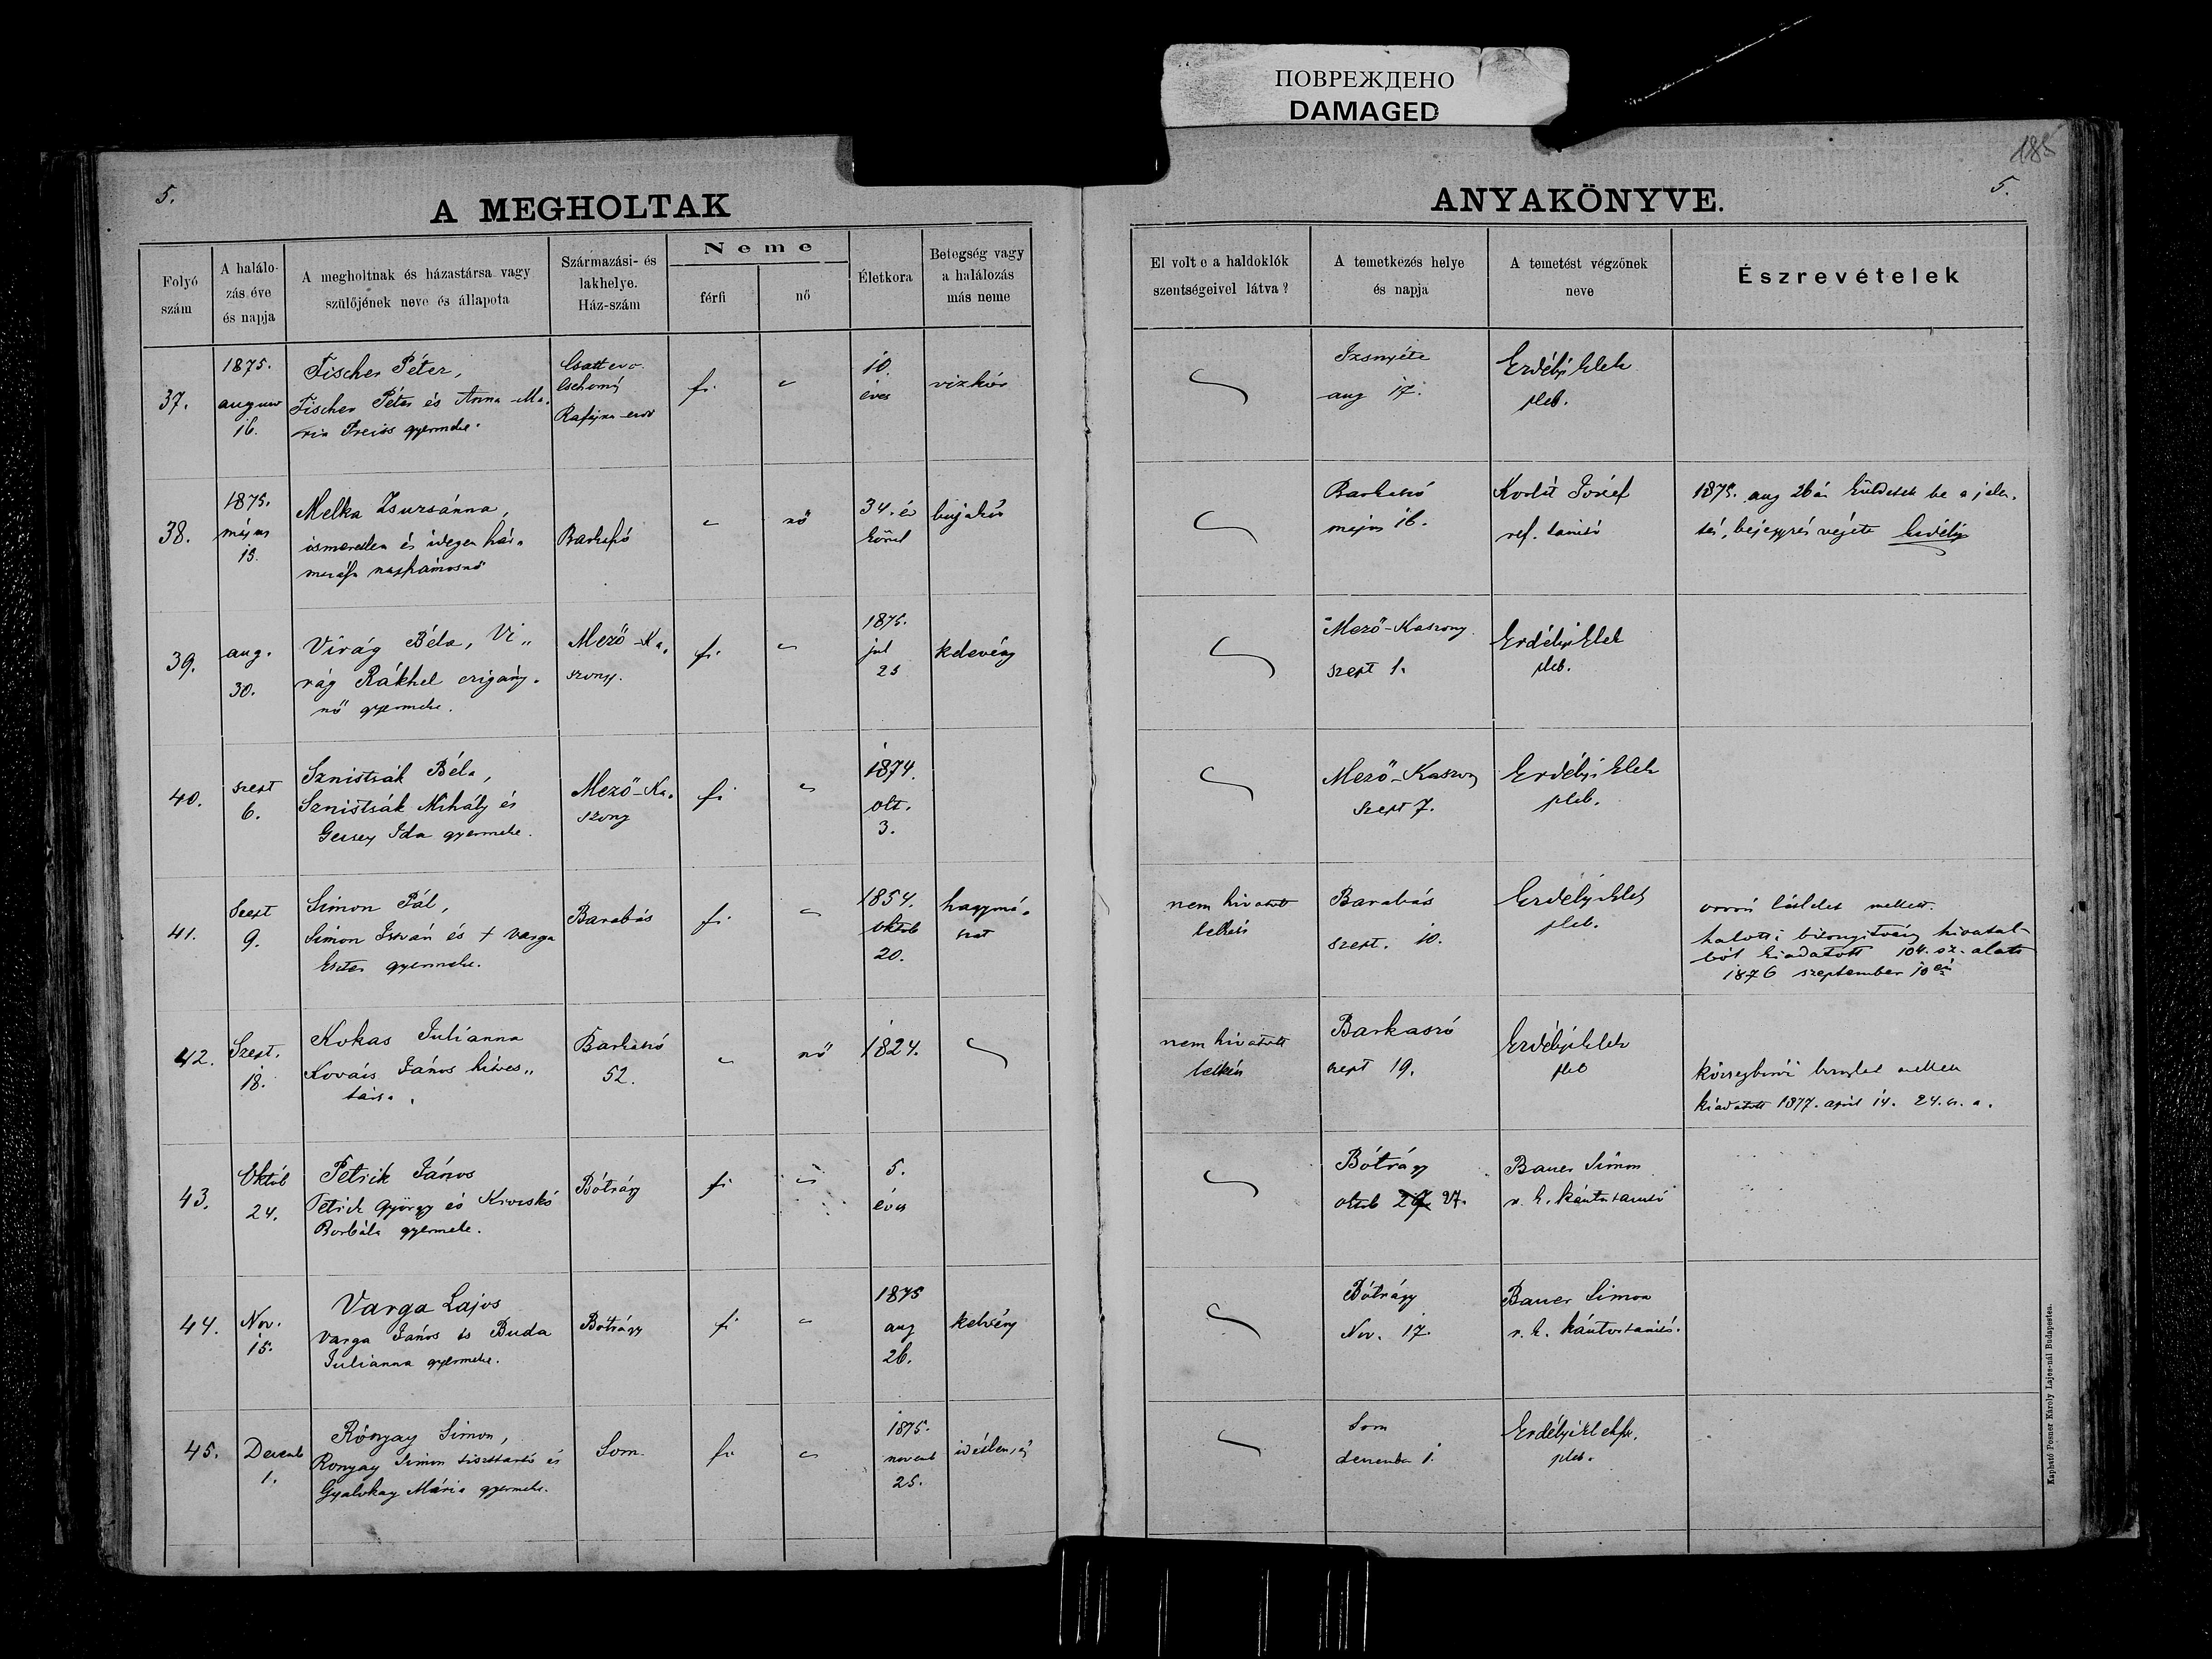 ПОВРЕЖДЕНО
DAMAGED
185
5.
5.
A MEGHOLTAK
ANYAKÖNYVE.
Folyó szám
A halálo-zás éve és napja
A megholtnak és házastársa vagy szülőjének neve és állapota
Származási- és lakhelye. Ház-szám
Neme
férfi
nő
Életkora
Betegség vagy a halálozás más neme
El volt e a haldoklók szentségeivel látva?
A temetkezés helye és napja
A temetést végzőnek neve
Észrevételek
37.
1875.
16.
Fischer Péter,
Fischer Péter és Anna Ma-
ria gyermeke.
fi
10.
éves
vizkór
aug 17.
Erdélyi Elek
pleb.
38.
1875.
május
15.
Melka Zsuzsánna,
ismeretlen és idegen
Barkaszó
nő
34. év
körül
Barkaszó
május 16.
József
ref. tanitó
1875. aug 26án küldetett be a jelen-
tés, bejegyzés végett Erdélyi
39.
aug.
30.
Virág Béla, Vi-
rág Rákhel czigány-
nő gyermeke.
Mező-Ka-
szony.
fi
1875.
jul
25
Mező-Kaszony
szept 1.
Erdélyi Elek
pleb.
40.
szept
6.
Sznistsák Béla,
Sznistsák Mihály és
Gecsey Ida gyermeke.
Mező-Ka-
szony
fi
1874.
okt.
3.
Mező-Kaszony
szept 7.
Erdélyi Elek
pleb.
41.
Szept
9.
Simon Pál,
Simon István és + Varga
Eszter gyermeke.
Barabás
fi
1854.
oktob
20.
hagymá-
nem hivatott
lelkész
Barabás
szept. 10.
Erdélyi Elek
pleb.
orvosi láttelet mellett.
halotti bizonyitvány hivatal-
ból kiadatott 104. sz. alatt
1876 szeptember 10én
42.
Szept.
18.
Kokas Julianna
Kovács János hites-
társa.
Barkaszó
52.
nő
1824.
nem hivatott
lelkész
Barkaszó
szept 19.
Erdélyi Elek
pleb
községbirói mellett
kiadatott 1877. april 14. 24. sz. a.
43.
Októb
24.
Petrik János
Petrik György és
Borbála gyermeke.
Bótrágy
fi
5.
éves
Bótrágy
oktob 27.
Bauer Simon
r. k. kántortanitó
44.
Nov.
15.
Varga Lajos
Varga János és Buda
Julianna gyermeke.
Bótrágy
fi
1875
aug
26.
Bótrágy
Nov. 17.
Bauer Simon
r. k. kántortanitó.
45.
Decemb
1.
Rónyay Simon,
Ronyay Simon tiszttartó és
Gyalokay Mária gyermeke.
Som.
fi
1875.
novemb
25.
Som
december 1.
Erdélyi Elek
pleb.
Kapható Posner Károly Lajos-nál Budapesten.